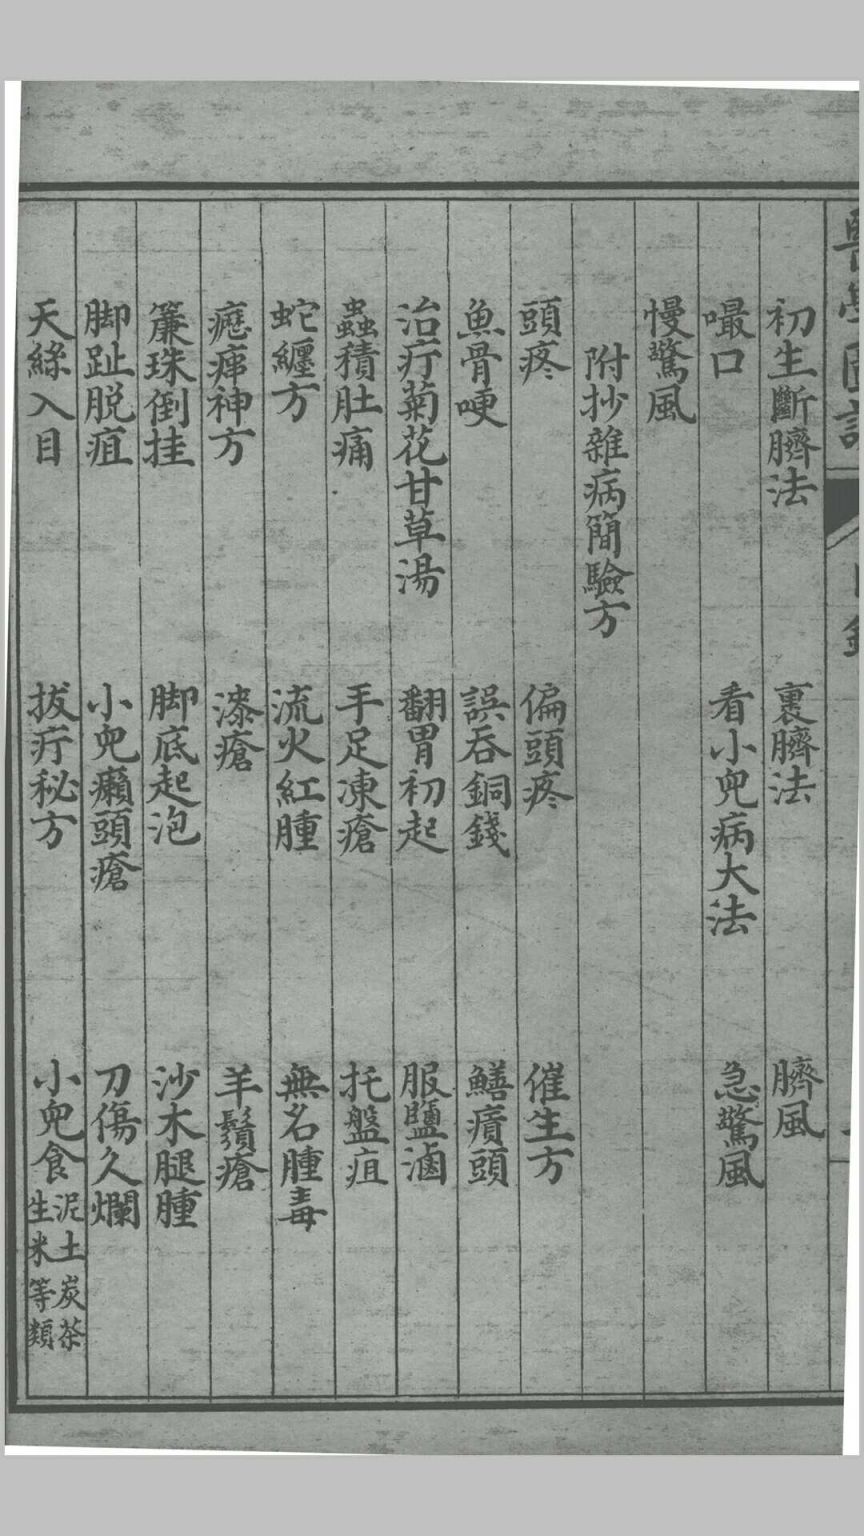 初生斷臍法 裹臍法 臍風
嘬口 看小兒病大法 急驚風
慢驚風
附抄雜病簡驗方
頭疼 偏頭疼 催生方
魚骨哽 誤吞銅錢 鱔癀頭
治疔菊花甘草湯 翻胃初起 服鹽滷
蟲積肚痛 手足凍瘡 托盤疽
蛇纏方 流火紅腫 無名腫毒
瘛瘲神方 漆瘡 羊鬚瘡
簾珠倒挂 脚底起泡 沙木腿腫
脚趾脱疽 小兒癩頭瘡 刀傷久爛
天絲入目 拔疔秘方 小兒食泥土炭茶生米等類